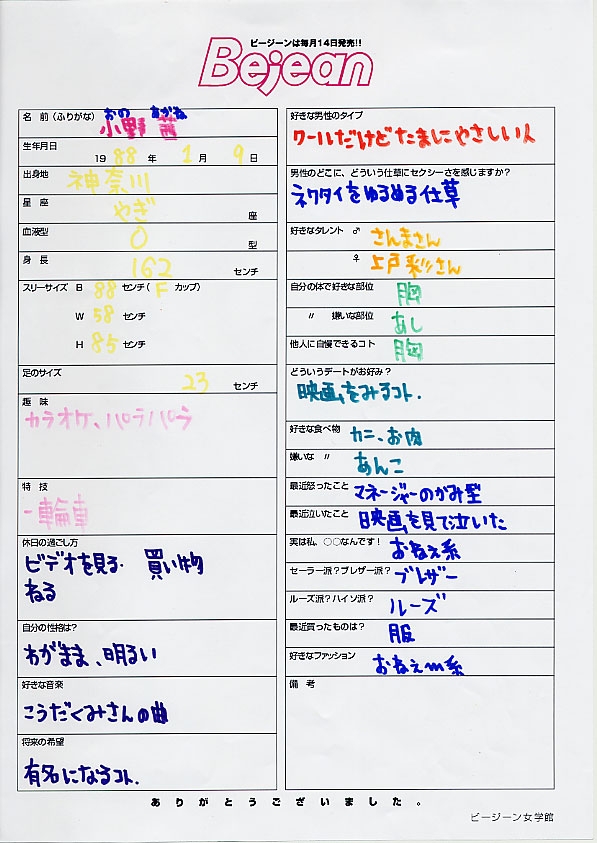 ビージーンは毎月14日発売!!
Bejean
名 前(ふりがな) おの あかね
小野 茜
生年月日
1988年 1月 9日
出身地 神奈川
星 座 やぎ 座
血液型 O 型
身 長 162 センチ
スリーサイズ B 88 センチ(Fカップ)
W 58 センチ
H 85 センチ
足のサイズ
23 センチ
趣 味
カラオケ、パラパラ
特 技
一輪車
休日の過ごし方
ビデオを見る. 買い物
ねる
自分の性格は?
わがまま、明るい
好きな音楽
こうだくみさんの曲
将来の希望
有名になるコト.
好きな男性のタイプ
クールだけどたまにやさしい人
男性のどこに、どういう仕草にセクシーさを感じますか?
ネクタイをゆるめる仕草
好きなタレント ♂ さんまさん
♀ 上戸彩さん
自分の体で好きな部位 胸
〃 嫌いな部位 あし
他人に自慢できるコト 胸
どういうデートがお好み?
映画をみるコト.
好きな食べ物 カニ、お肉
嫌いな 〃 あんこ
最近怒ったこと マネージャーのかみ型
最近泣いたこと 映画を見て泣いた
実は私、○○なんです! おねえ系
セーラー派?ブレザー派? ブレザー
ルーズ派?ハイソン派? ルーズ
最近買ったものは? 服
好きなファッション おねえ系
備 考
ありがとうございました。
ビージーン女学館